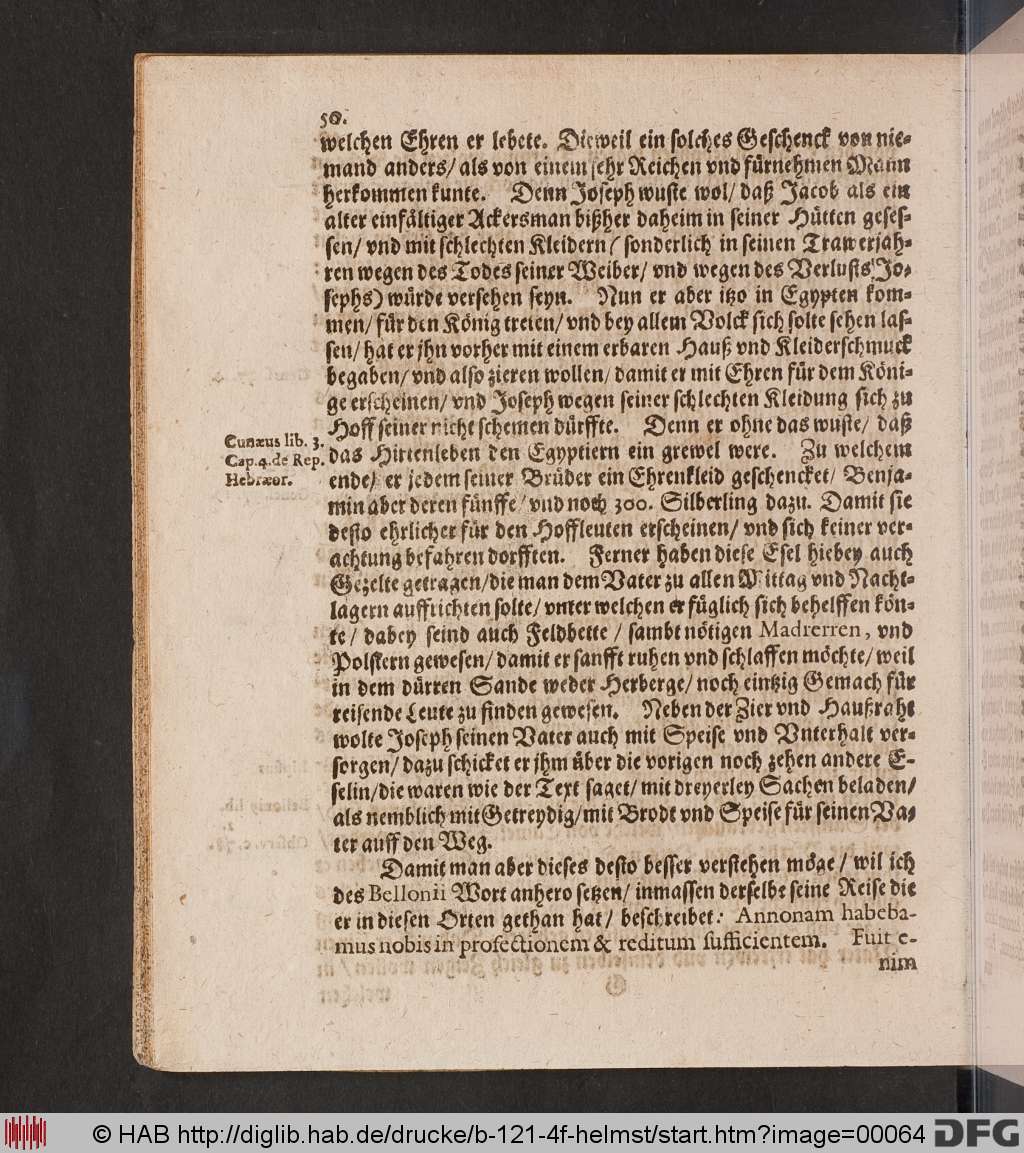 50.
welchen Ehren er lebete. Dieweil ein solches Geschenck von nie-
mand anders/ als von einem sehr Reichen vnd fürnehmen Mann
herkommen kunte. Denn Joseph wuste wol/ daß Jacob als ein
alter einfältiger Ackersman bißher daheim in seiner Hütten geses-
sen/ vnd mit schlechten Kleidern (sonderlich in seinen Trawerjah-
ren wegen des Todes seiner Weiber/ vnd wegen des Verlusts Jo-
sephs) würde versehen seyn. Nun er aber itzo in Egypten kom-
men/ für den König treten/ vnd bey allem Volck sich solte sehen las-
sen/ hat er jhn vorher mit einem erbaren Hauß vnd Kleiderschmuck
begaben/ vnd also zieren wollen/ damit er mit Ehren für dem Köni-
ge erscheinen/ vnd Joseph wegen seiner schlechten Kleidung sich zu
Hoff seiner nicht schemen dürffte. Denn er ohne das wuste/ daß
das Hirtenleben den Egyptiern ein grewel were. Zu welchem
ende/ er jedem seiner Brüder ein Ehrenkleid geschencket/ Benja-
min aber deren fünffe/ vnd noch 300. Silberling dazu. Damit sie
desto ehrlicher für den Hoffleuten erscheinen/ vnd sich keiner ver-
achtung befahren dorfften. Ferner haben diese Esel hiebey auch
Gezelte getragen/ die man dem Vater zu allen Mittag vnd Nacht-
lagern auffrichten solte/ vnter welchen er füglich sich behelffen kön-
te/ dabey seind auch Feldbette/ sambt nötigen Madrerren, vnd
Polstern gewesen/ damit er sanfft ruhen vnd schlaffen möchte/ weil
in dem dürren Sande weder Herberge/ noch eintzig Gemach für
reisende Leute zu finden gewesen. Neben der Zier vnd Haußraht
wolte Joseph seinen Vater auch mit Speise vnd Vnterhalt ver-
sorgen/ dazu schicket er jhm über die vorigen noch zehen andere E-
selin/ die waren wie der Text saget/ mit dreyerley Sachen beladen/
als nemblich mit Getreydig/ mit Brodt vnd Speise für seinen Va-
ter auff den Weg.
Damit man aber dieses desto besser verstehen möge/ wil ich
des Bellonii Wort anhero setzen/ inmassen derselbe seine Reise die
er in diesen Orten gethan hat/ beschreibet: Annonam habeba-
mus nobis in profectionem & reditum sufficientem. Fuit e-
nim
Cunæus lib. 3.
Cap. 4. de Rep.
Hebræor.
© HAB http://diglib.hab.de/drucke/b-121-4f-helmst/start.htm?image=00064
DFG